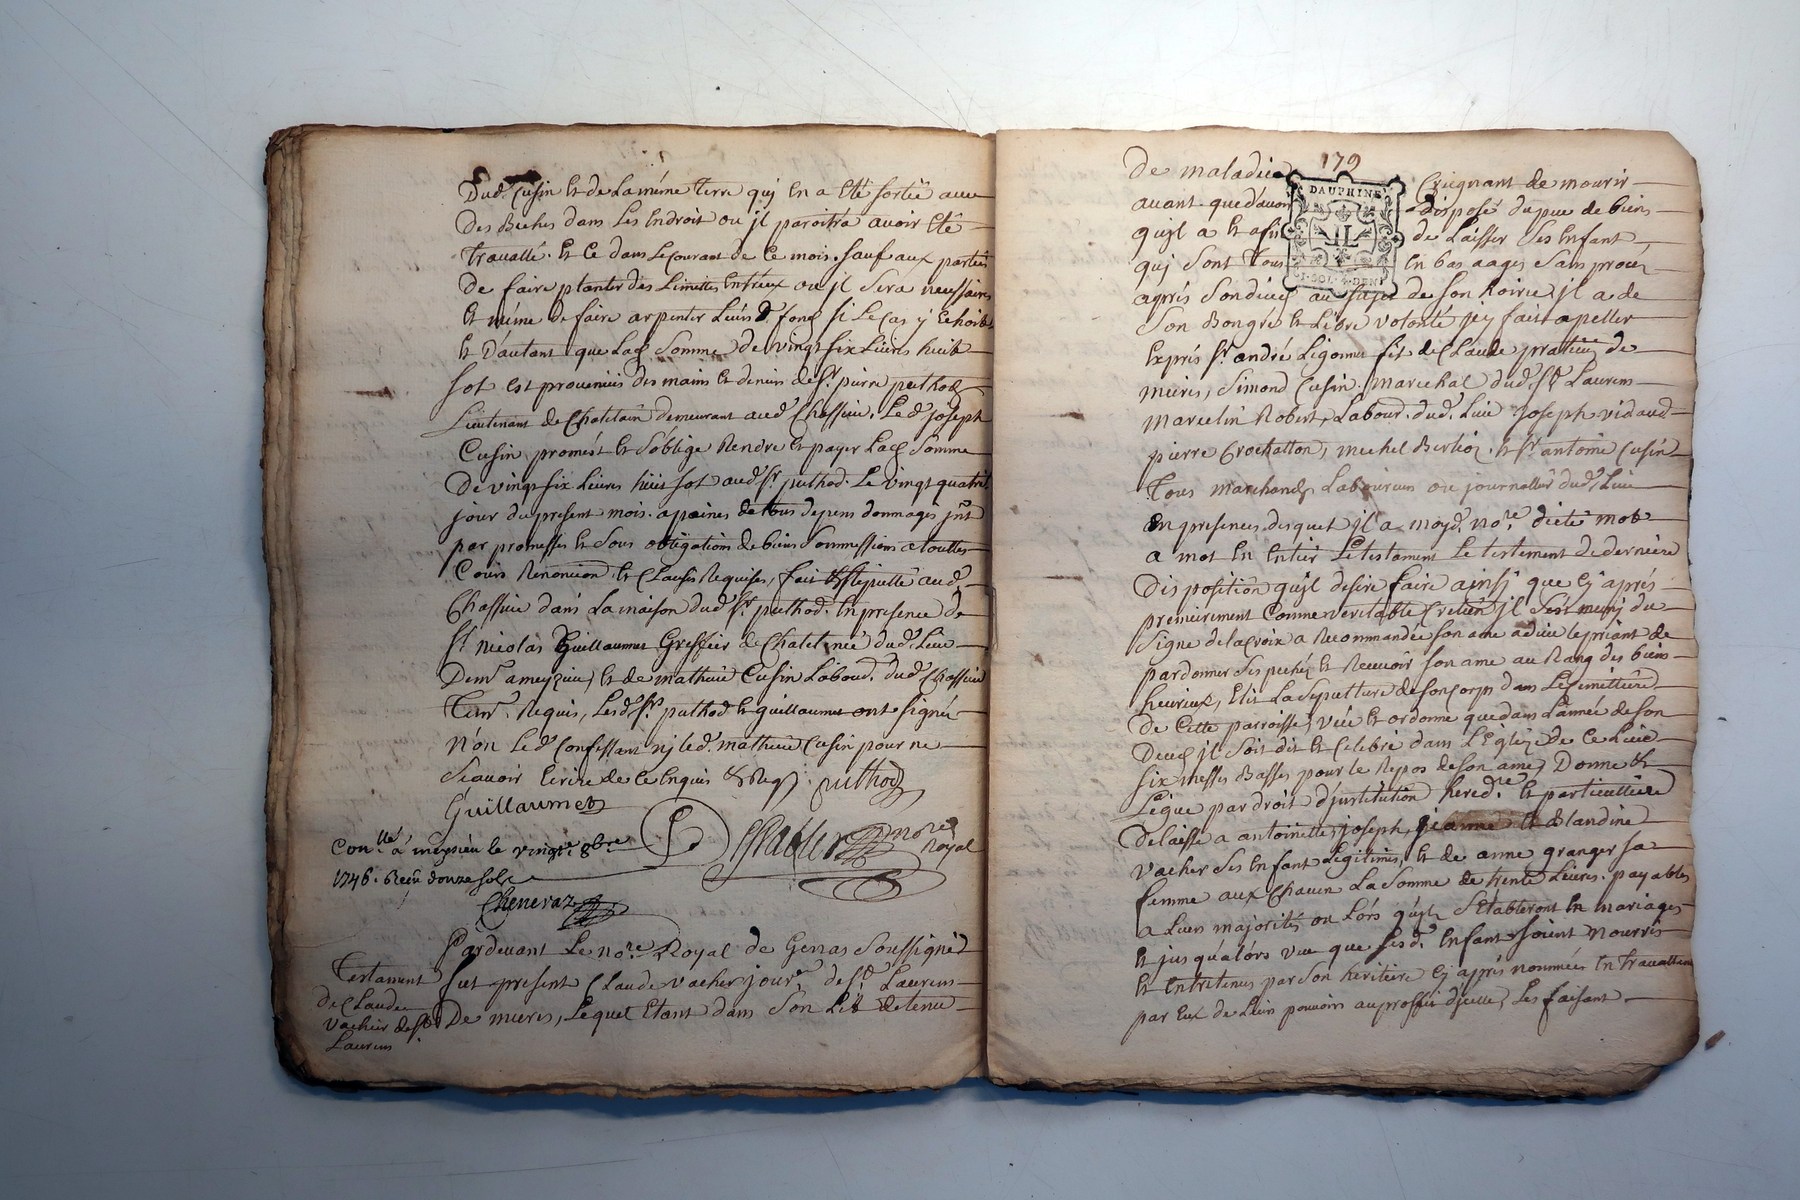 Dud. Cusin et de La même terre quj en a eté sortie avec
des Beches dans Les Endroit ou jl paroitra avoir eté
travaillé. et ce dans Le courant de Ce mois. sauf aux parties
De faire planter des Limittes Entreux ou jl Sera necessaire
et même de faire arpenter Leurs d. fong si Le Cas y Echoit
et D'autant que Lad. Somme de vingt six Livres huit
sol est provenüe des mains et deniers de Sr. pierre puthod
Lieutenant de Chatelain demeurant aud. Chassieu. Led. joseph
Cusin promest et s'oblige Rendre et payer Lad. Somme
De vingt six Livres huit sol aud. Sr. puthod. Le vingt quatre
jour du present mois. a peines de tous depens dommages jnt
par promesses et Sous obligations de biens Soummissions a touttes
Cours Renoncion. et Clauses Requises, fait et stipullé aud.
Chassieu dans La maison dud. Sr. puthod. En presence de
Sr. Nicolas Guillaumet Greffier de Chatelnie dud. Lieu
Demt. a meyzieu, et de mathieu Cusin Laboud. dud. Chassieu
Tem. Requis, Lesd. Srs. puthod et guillaumet ont signé
N'on Led. Confessant nj led. mathieu Cusin pour ne
Scavoir Ecrire de ce Enquis & Requis puthod
Guillaumet
Conllé. a meysieu le vingt 8bre
1746. Reçu douze sols
nore
Royal
Cheneraz
Pardevant Le nore. Royal de Genas Soussigné
Testament
de Claude
vacher de St.
Laurens
fut present Claude vacher jourer. de St. Laurens
De mures, Lequel Etant dans Son Lit detenu
179
De maladie Creignant de mourir
DAUPHINE
avant que d'avoir disposé du peu de biens
qujl a et afin de Laisser Ses Enfant
quj Sont Tous En bas aages Sans proces
aprés Son deces au sujet de Son hoirie, jl a de
Son Bongré et Libre volonté jcy fait apeller
Exprés Sr. andré Ligonnet fils de Claude praticien de
mures, Simond Cusin marechal dud. St. Laurens
Marcelin Robert, Labour. dud. Lieu joseph vidaud
pierre Crochatton, michel Berlioz, et Sr. antoine Cusin
Tous marchands Laboureurs ou journallier dud. Lieu
En presences desquel jl a moyd. nore. dicté mot
a mot En Entier Le testament Le testement de derniére
Disposition qujl desire faire ainsj que Cy aprés
premierement Comme veritable Cretien jl S'est munj du
Signe de la Croix a Recommandée Son ame a dieu Le priant de
pardonner Ses pechéz et Recevoir Son ame au Rang des biens
heureux, Elit La Sepulture de Son Corps dans Le Cemettiere
de Cette parroisse, veut et ordonne que dans L'année de Son
Deces jl Soit dit et Celebré dans L'Eglize de Ce Lieu
six messes Basses pour le Repos de Son ame, Donne et
Légue par droit d'justitution heredre. et particulliere
Delaisse a antoinette, joseph, jeanne et Blandine
vacher Ses Enfant Légitimes, et de anne granger sa
femme aux Chacun La Somme de trente Livres. payables
a Leur majorités ou Lórs qu'jls S'Etabliront En mariages
et jusqu'alórs veut que Sesd. Enfant Soient nourris
et Entretenus par Son heritiere Cy aprés nommée En travaillant
par Eux de Leur pouvoirs au proffit d'jcelle, Les faisant